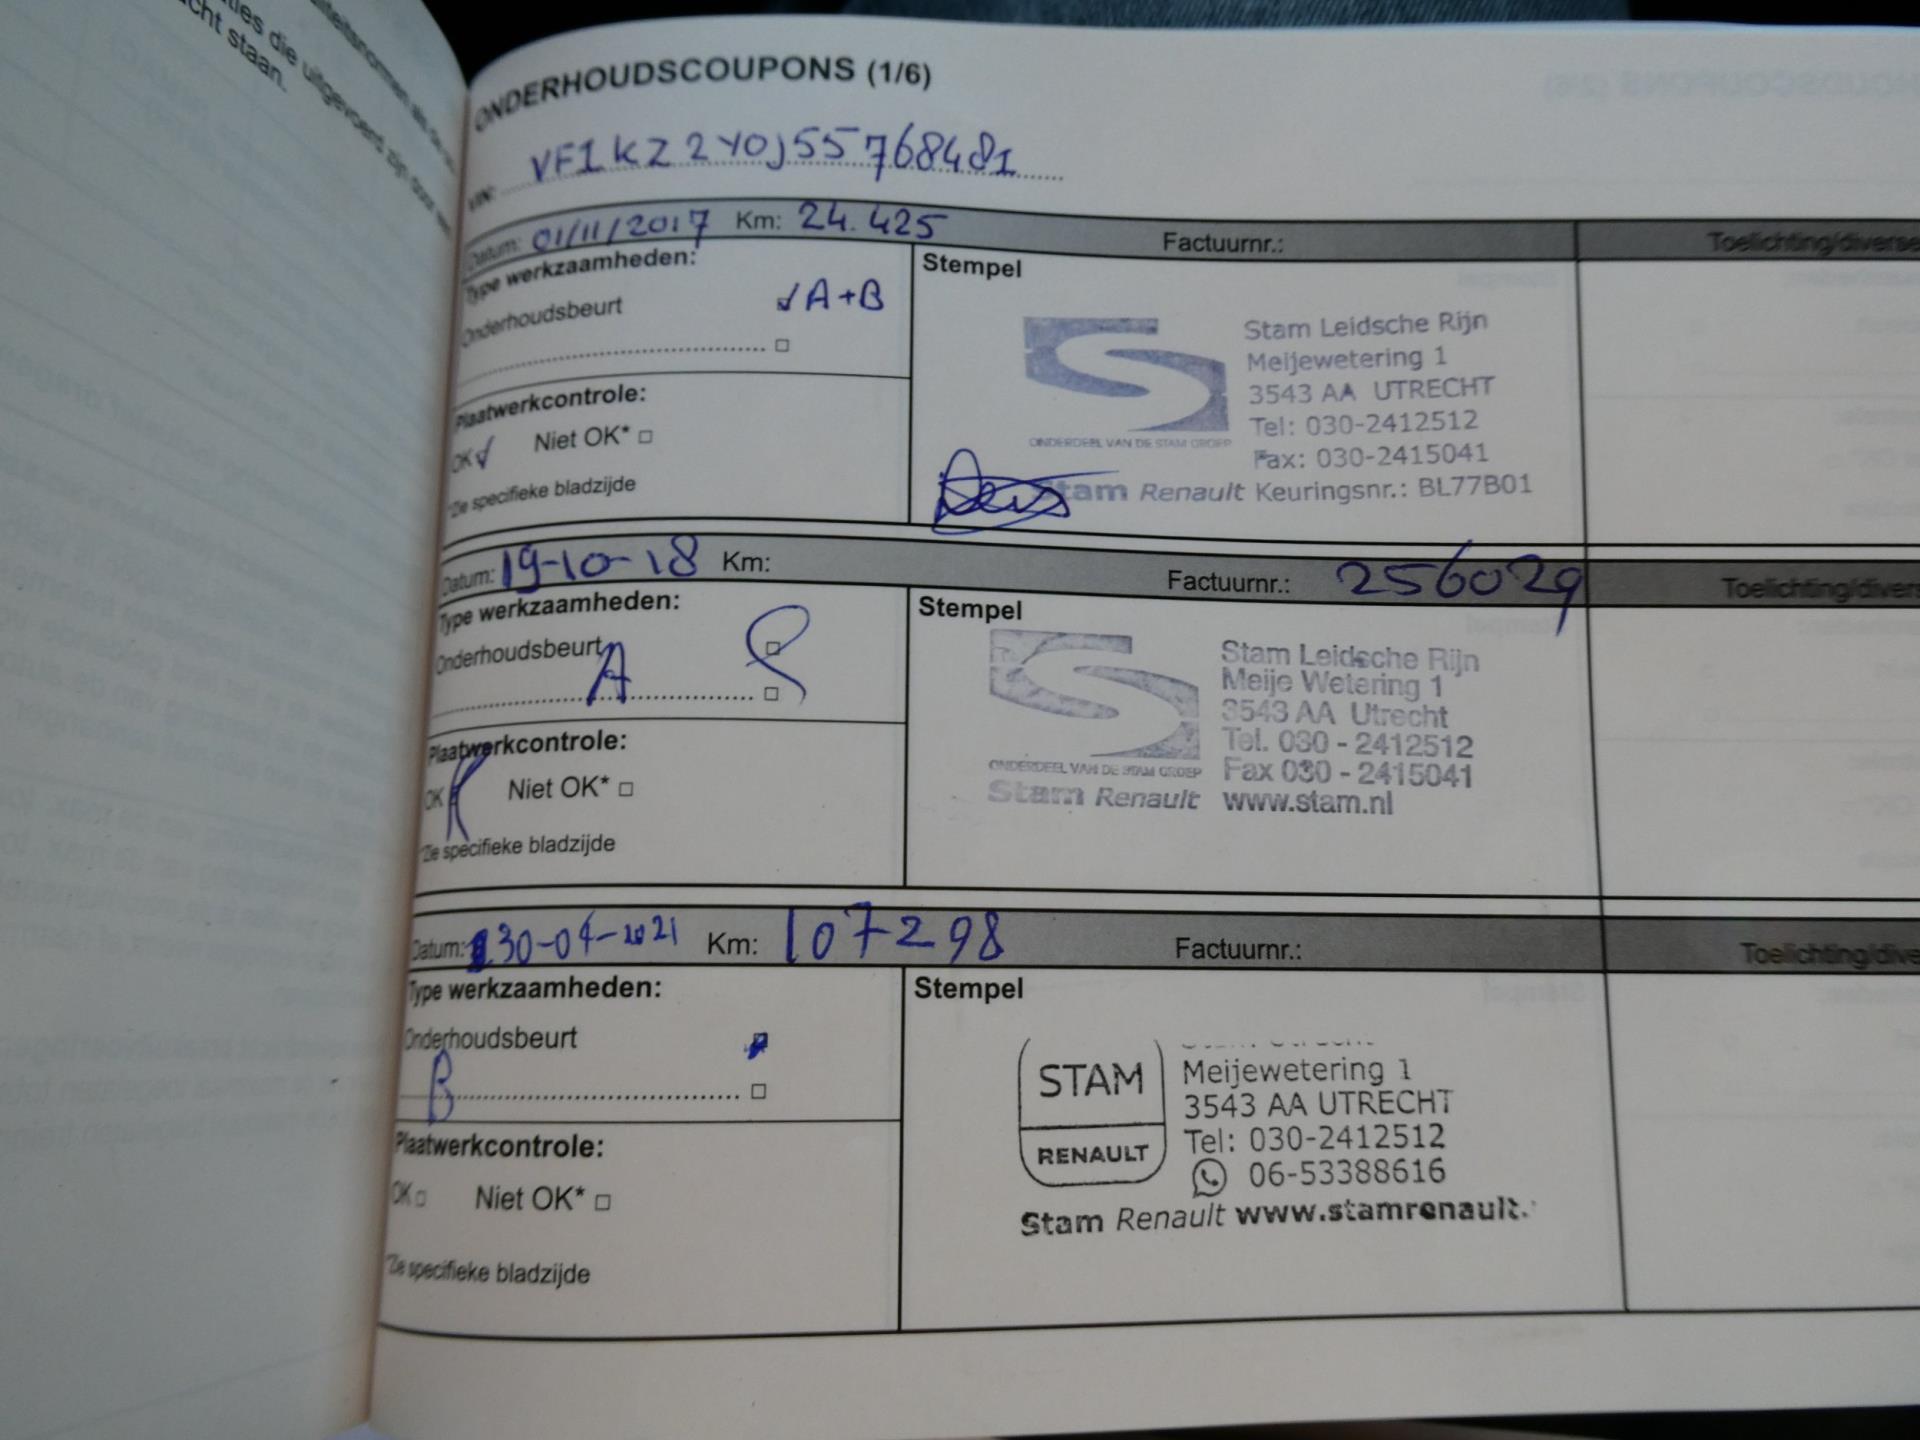 ties die uitgevoerd zijn door
cht staan.
ONDERHOUDSCOUPONS (1/6)
VIN: VF1KZ2Y0J55768481
Datum: 01/11/2017 Km: 24.425 Factuurnr.: Toelichting/diverse
Type werkzaamheden:
Onderhoudsbeurt A+B
Stempel
Stam Leidsche Rijn
Meijewetering 1
3543 AA UTRECHT
Tel: 030-2412512
Fax: 030-2415041
ONDERDEEL VAN DE STAM GROEP
Stam Renault Keuringsnr.: BL77B01
Plaatwerkcontrole:
OK Niet OK*
*Zie specifieke bladzijde
Datum: 19-10-18 Km: Factuurnr.: 256029 Toelichting/divers
Type werkzaamheden:
Onderhoudsbeurt
A
Stempel
Stam Leidsche Rijn
Meije Wetering 1
3543 AA Utrecht
Tel. 030 - 2412512
Fax 030 - 2415041
ONDERDEEL VAN DE STAM GROEP
Stam Renault www.stam.nl
Plaatwerkcontrole:
OK Niet OK*
*Zie specifieke bladzijde
Datum: 30-04-2021 Km: 107298 Factuurnr.: Toelichting/dive
Type werkzaamheden:
Onderhoudsbeurt
B
Stempel
STAM
RENAULT
Meijewetering 1
3543 AA UTRECHT
Tel: 030-2412512
06-53388616
Stam Renault www.stamrenault.
Plaatwerkcontrole:
OK Niet OK*
*Zie specifieke bladzijde